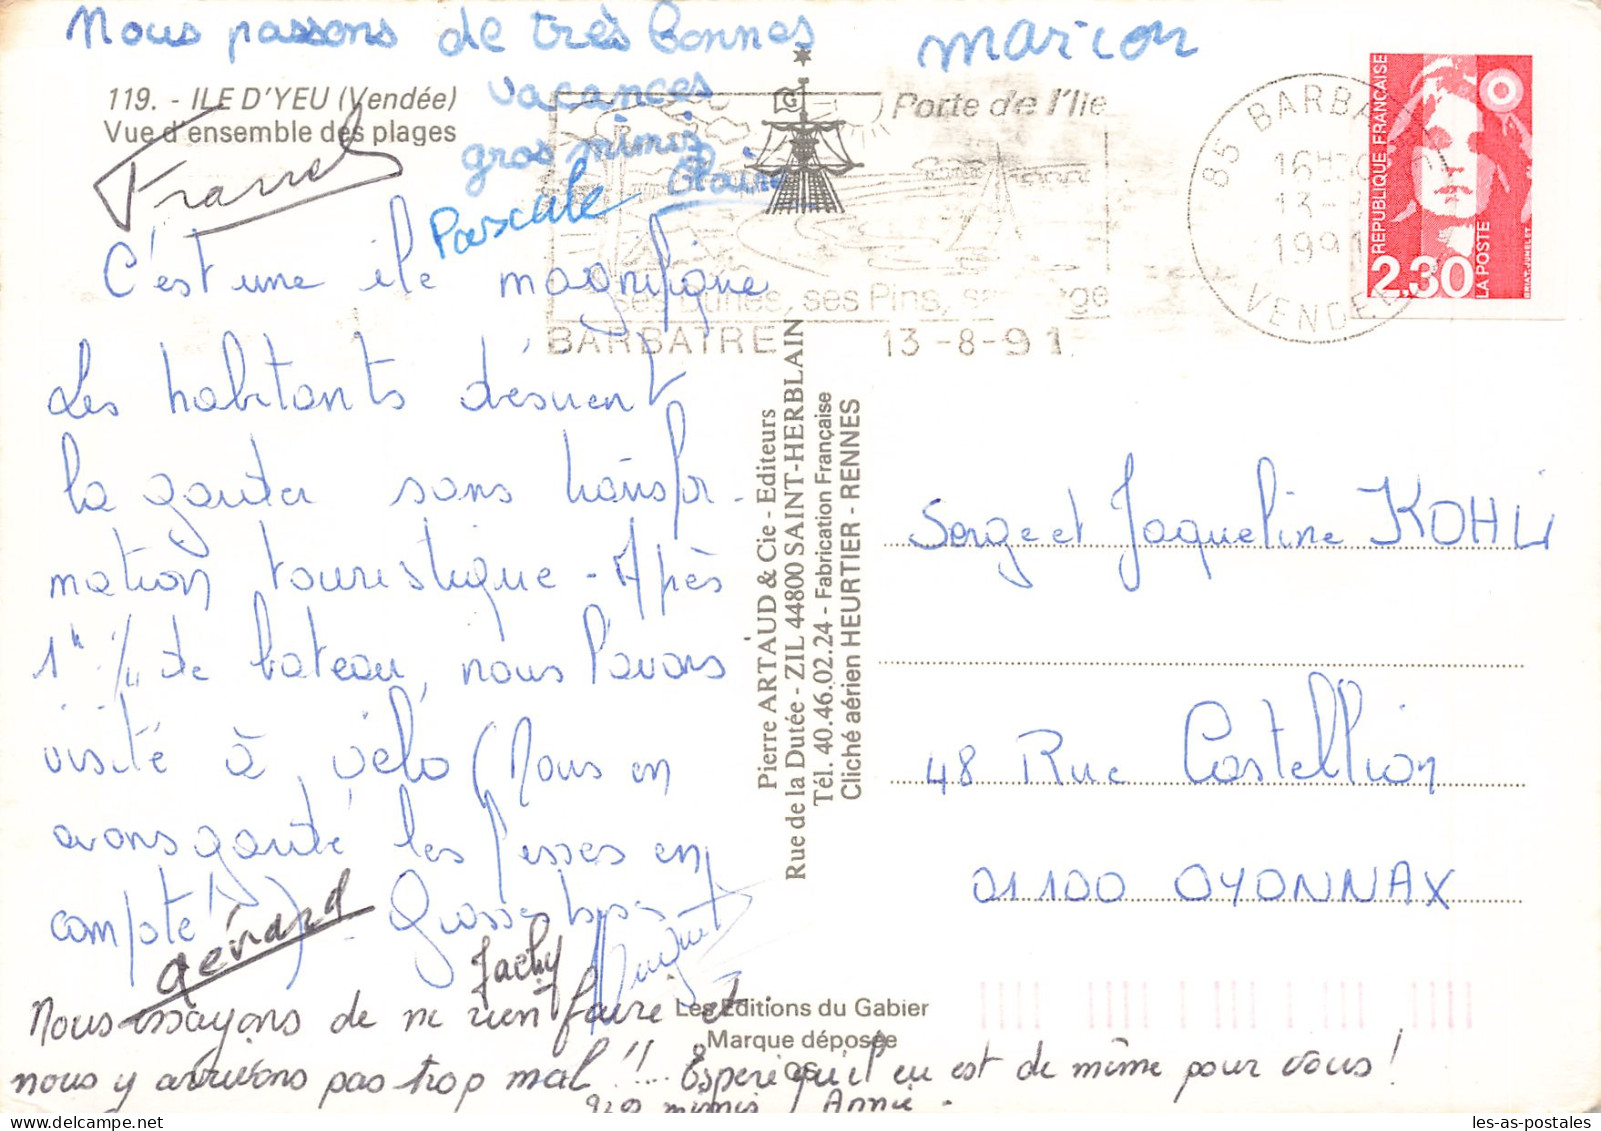 Nous passons de très bonnes
vacances
gros mimis
Marion
119. - ILE D'YEU (Vendée)
Vue d'ensemble des plages
Franck
Pascale
Claire
C'est une île magnifique
Les habitants désirent
la garder sans transfor-
mation touristique - Après
1h 1/4 de bateau, nous l'avons
visité à vélo (Nous en
avons gardé les fesses en
compote !) - Grosses bises
Gérard
Jacky
Nous essayons de ne rien faire et
nous y arrivons pas trop mal !!... Espère qu'il en est de même pour vous !
gros mimis Annie.
Porte de l'Ile
ses Dunes, ses Pins, sa Plage
BARBATRE 13-8-91
85 BARBATRE
16H30
13-8
1991
VENDEE
REPUBLIQUE FRANÇAISE
2,30
LA POSTE
BRIAT. JUMELET
Pierre ARTAUD & Cie - Editeurs
Rue de la Dutée - ZIL 44800 SAINT-HERBLAIN
Tél. 40.46.02.24 - Fabrication Française
Cliché aérien HEURTIER - RENNES
Serge et Jaqueline KOHLI
48 Rue Castellion
01100 OYONNAX
Les Editions du Gabier
Marque déposée
les-as-postales